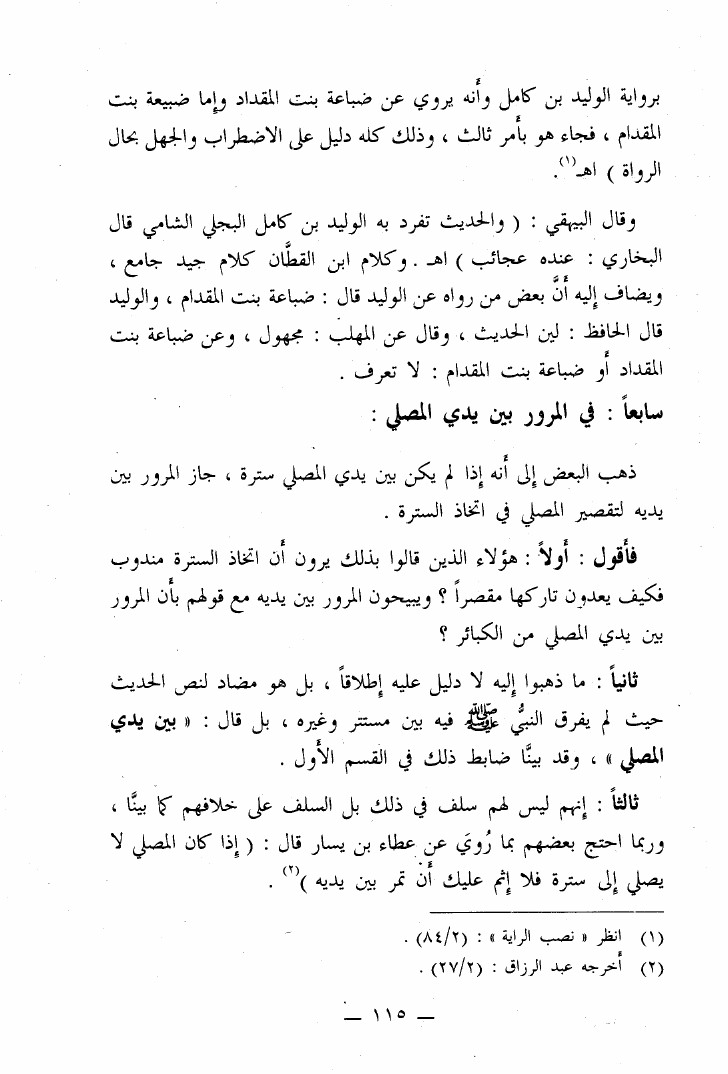 برواية الوليد بن كامل وأنه يروي عن ضباعة بنت المقداد وإما ضبيعة بنت
المقدام ، فجاء هو بأمر ثالث ، وذلك كله دليل على الاضطراب والجهل بحال
الرواة ) اهـ(١).
وقال البيهقي : ( والحديث تفرد به الوليد بن كامل البجلي الشامي قال
البخاري : عنده عجائب ) اهـ . وكلام ابن القطَّان كلام جيد جامع ،
ويضاف إليه أنَّ بعض من رواه عن الوليد قال : ضباعة بنت المقدام ، والوليد
قال الحافظ : لين الحديث ، وقال عن المهلب : مجهول ، وعن ضباعة بنت
المقداد أو ضباعة بنت المقدام : لا تعرف .
سابعاً : في المرور بين يدي المصلي :
ذهب البعض إلى أنه إذا لم يكن بين يدي المصلي سترة ، جاز المرور بين
يديه لتقصير المصلي في اتخاذ السترة .
فأقول : أولاً : هؤلاء الذين قالوا بذلك يرون أن اتخاذ السترة مندوب
فكيف يعدون تاركها مقصراً ؟ ويبيحون المرور بين يديه مع قولهم بأن المرور
بين يدي المصلي من الكبائر ؟
ثانياً : ما ذهبوا إليه لا دليل عليه إطلاقاً ، بل هو مضاد لنص الحديث
حيث لم يفرق النبيُّ ﷺ فيه بين مستتر وغيره ، بل قال : « بين يدي
المصلي » ، وقد بينَّا ضابط ذلك في القسم الأول .
ثالثاً : إنهم ليس لهم سلف في ذلك بل السلف على خلافهم كما بينَّا ،
وربما احتج بعضهم بما رُويَ عن عطاء بن يسار قال : ( إذا كان المصلي لا
يصلي إلى سترة فلا إثم عليك أنْ تمر بين يديه )(٢) .
(١) انظر « نصب الراية » : (٨٤/٢) .
(٢) أخرجه عبد الرزاق : (٢٧/٢) .
— ١١٥ —